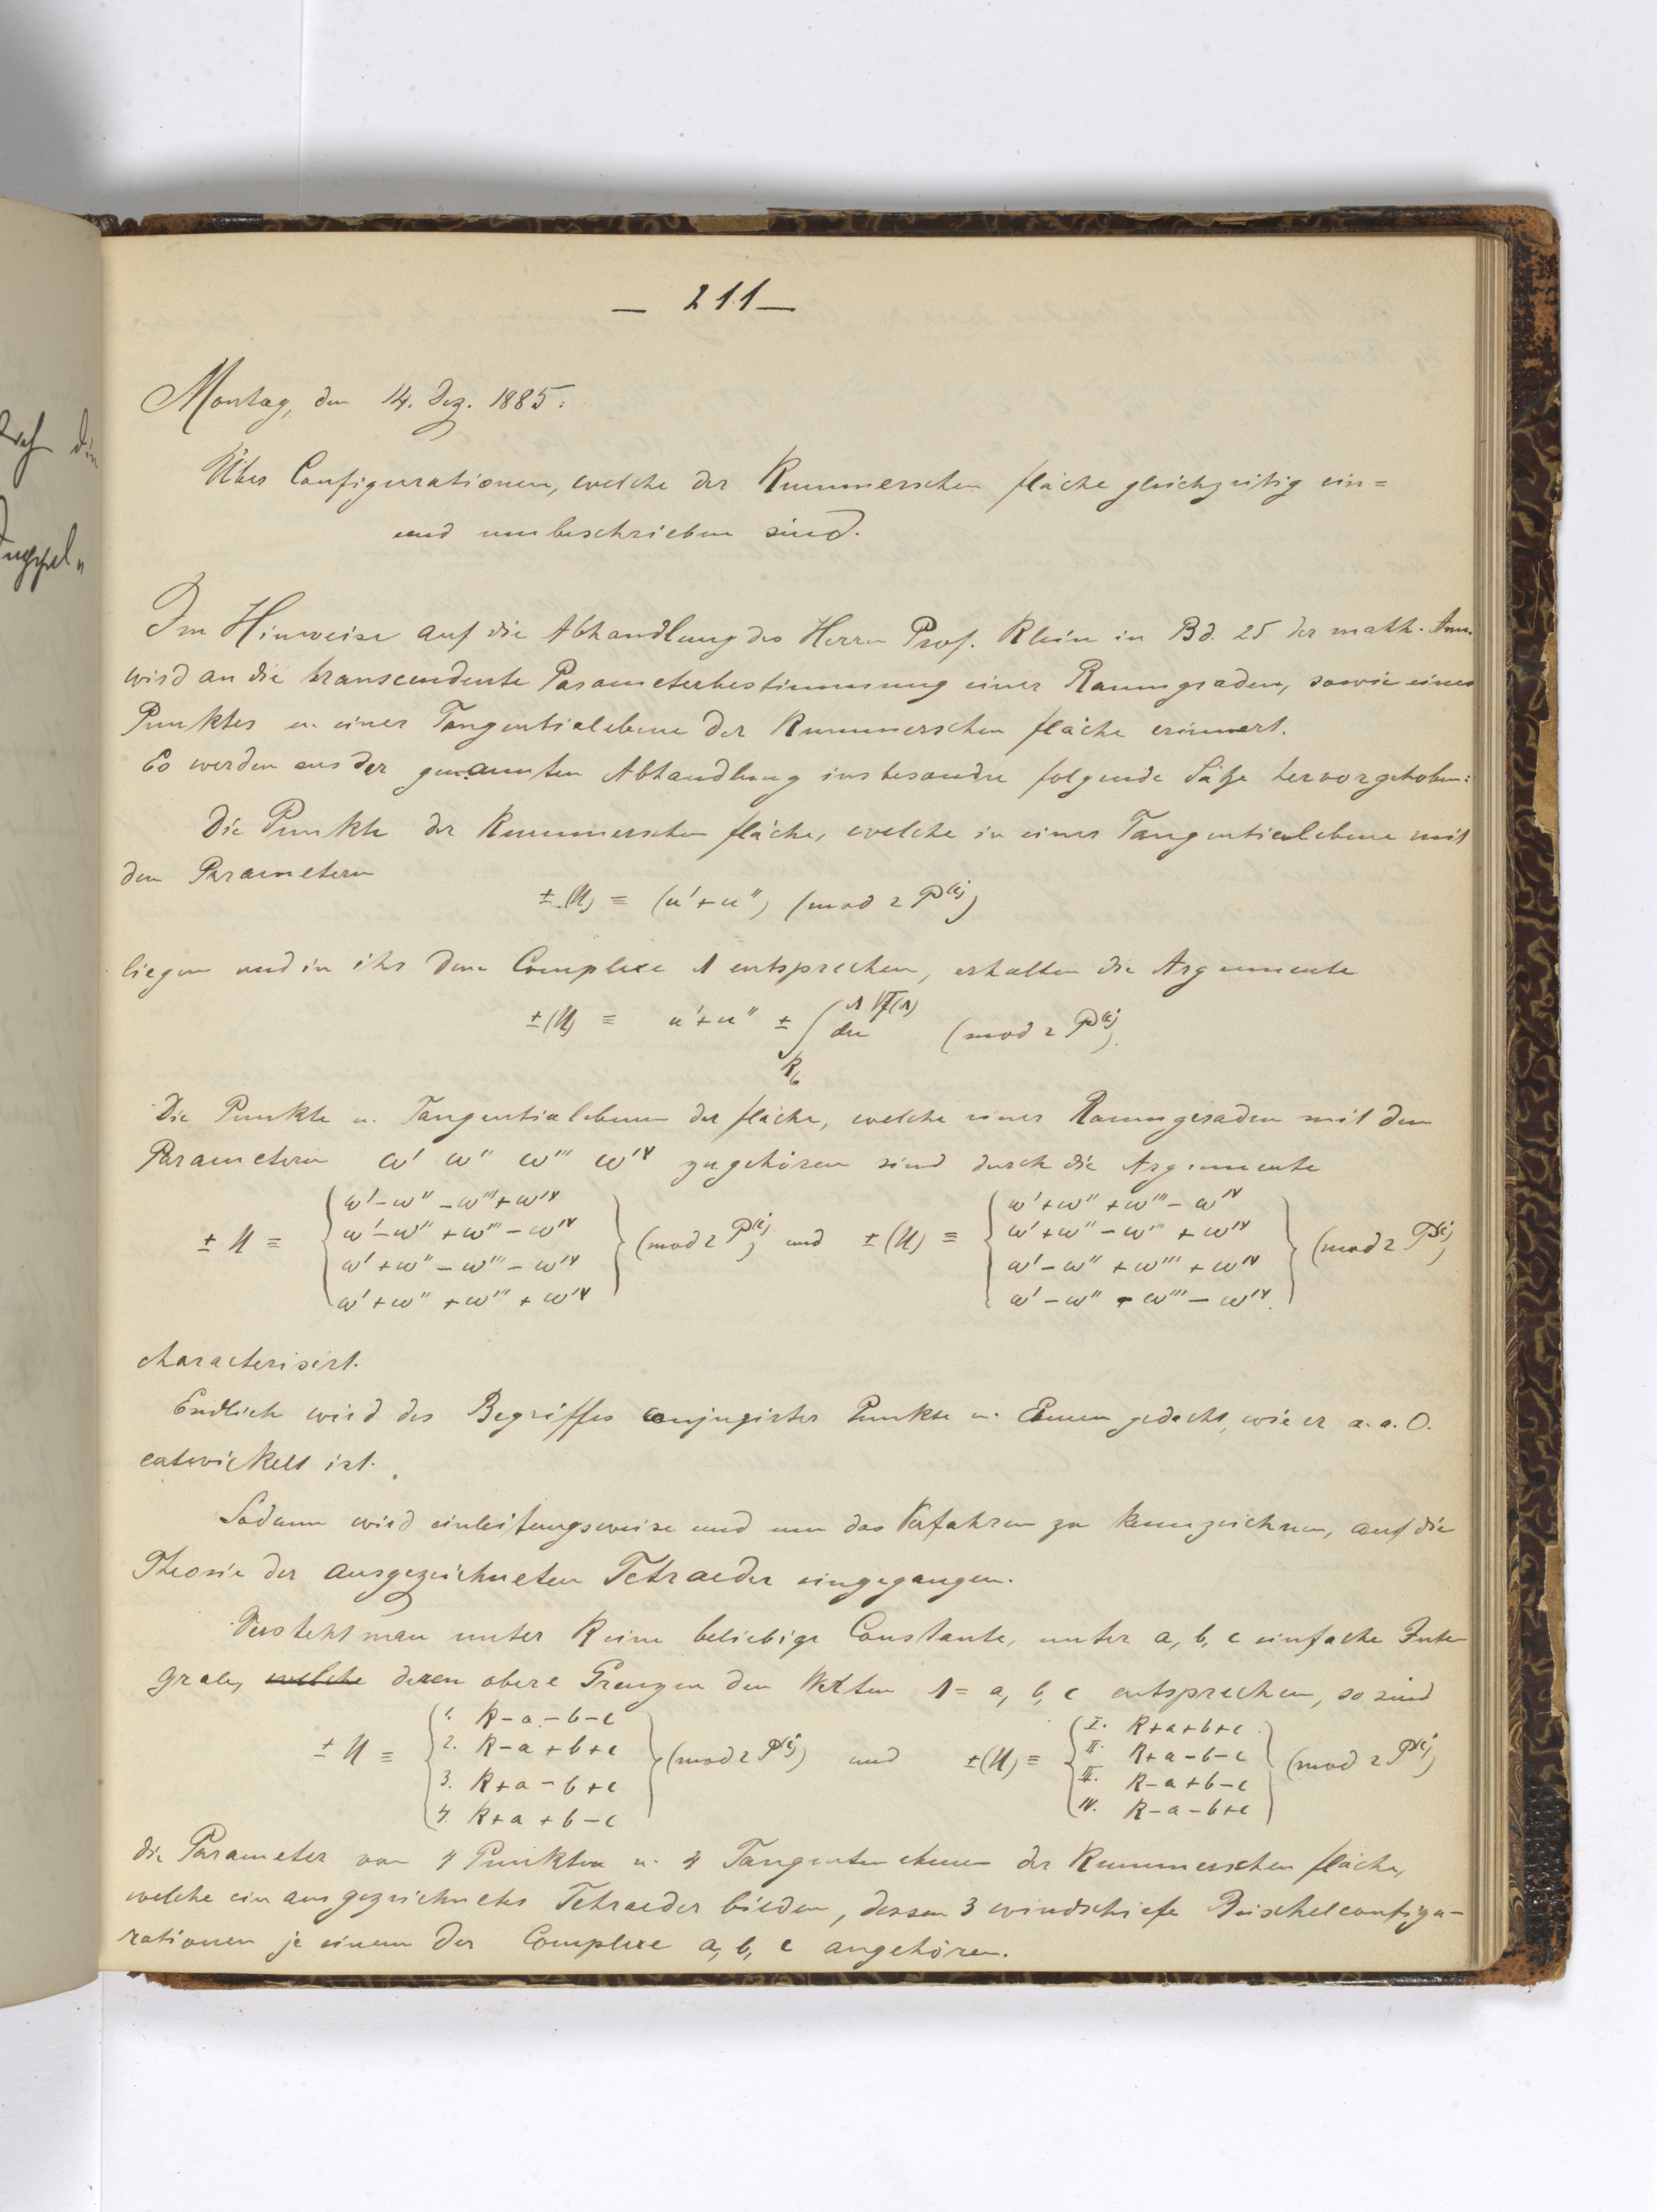 — 211 —
Montag, den 14. Dez. 1885.
Über Configurationen, welche der Kummerschen fläche gleichzeitig ein=
und umbeschrieben sind.
Im Hinweise auf die Abhandlung des Herrn Prof. Klein in Bd. 25 der math. Ann.
wird an die transcendente Parameterbestimmung einer Raumgraden, sowie eines
Punktes u. einer Tangentialebene der Kummerschen fläche erinnert.
Es werden aus der genannten Abhandlung insbesondre folgende Sätze hervorgehoben:
Die Punkte der Kummerschen fläche, welche in einer Tangentialebene mit
den Parametern
± (U) ≡ (u' + u'') (mod 2 P^(i))
liegen und in ihr dem Complexe Λ entsprechen, erhalten die Argumente
± (U) ≡ u' + u'' ± ∫_{K_6}^{Λ √f(Λ)} du (mod 2 P^(i))
Die Punkte u. Tangentialebenen der fläche, welche einer Raumgeraden mit den
Parametern ω' ω'' ω''' ω'^V zugehören sind durch die Argumente
± U ≡ { ω' − ω'' − ω''' + ω'^V
ω' − ω'' + ω''' − ω'^V
ω' + ω'' − ω''' − ω'^V
ω' + ω'' + ω''' + ω'^V } (mod 2 P^(i)) und ± (U) ≡ { ω' + ω'' + ω''' − ω'^V
ω' + ω'' − ω''' + ω'^V
ω' − ω'' + ω''' + ω'^V
ω' − ω'' − ω''' − ω'^V } (mod 2 P^(i))
characterisirt.
Endlich wird des Begriffes conjugirter Punkte u. Ebenen gedacht, wie er a. a. O.
entwickelt ist.
Sodann wird einleitungsweise und um das Verfahren zu kennzeichnen, auf die
Theorie der ausgezeichneten Tetraeder eingegangen.
Versteht man unter K eine beliebige Constante, unter a, b, c einfache Inte
grale, welche deren obere Grenzen den Werten Λ = a, b, c entsprechen, so sind
± U ≡ { 1. K − a − b − c
2. K − a + b + c
3. K + a − b + c
4. K + a + b − c } (mod 2 P^(i)) und ± (U) ≡ { I. K + a + b + c
II. K + a − b − c
III. K − a + b − c
IV. K − a − b + c } (mod 2 P^(i))
die Parameter von 4 Punkten u. 4 Tangentenebenen der Kummerschen fläche,
welche ein ausgezeichnetes Tetraeder bilden, dessen 3 windschiefe Büschelconfigu-
rationen je einem der Complexe a, b, c angehören.